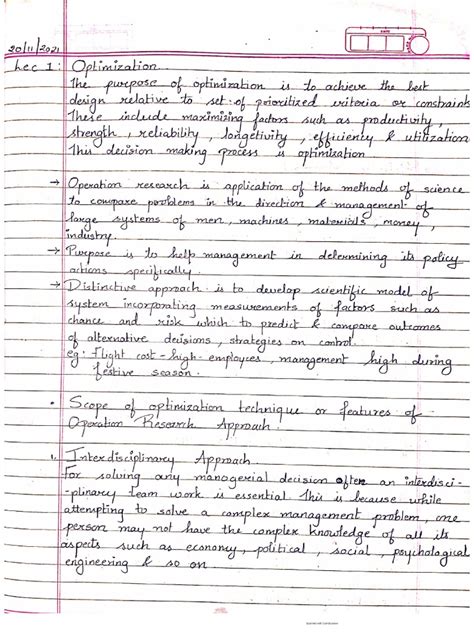 20/11/2021
Lec 1: Optimization
The purpose of optimization is to achieve the best
design relative to set of prioritized criteria or constraints
These include maximizing factors such as productivity,
strength, reliability, longetivity, efficiency & utilization
This decision making process is optimization
→ Operation research is application of the methods of science
to compare problems in the direction & management of
large systems of men, machines, materials, money,
industry.
→ Purpose is to help management in determining its policy
actions specifically.
→ Distinctive approach is to develop scientific model of
system incorporating measurements of factors such as
chance and risk which to predict & compare outcomes
of alternative decisions, strategies on control.
eg: Flight cost - high - employees, management high during
festive season.
• Scope of optimization technique or features of
Operation Research Approach.
1. Interdisciplinary Approach
For solving any managerial decision often an interdisci-
-plinary team work is essential This is because while
attempting to solve a complex management problem, one
person may not have the complex knowledge of all its
aspects such as economy, political, social, psychological
engineering & so on